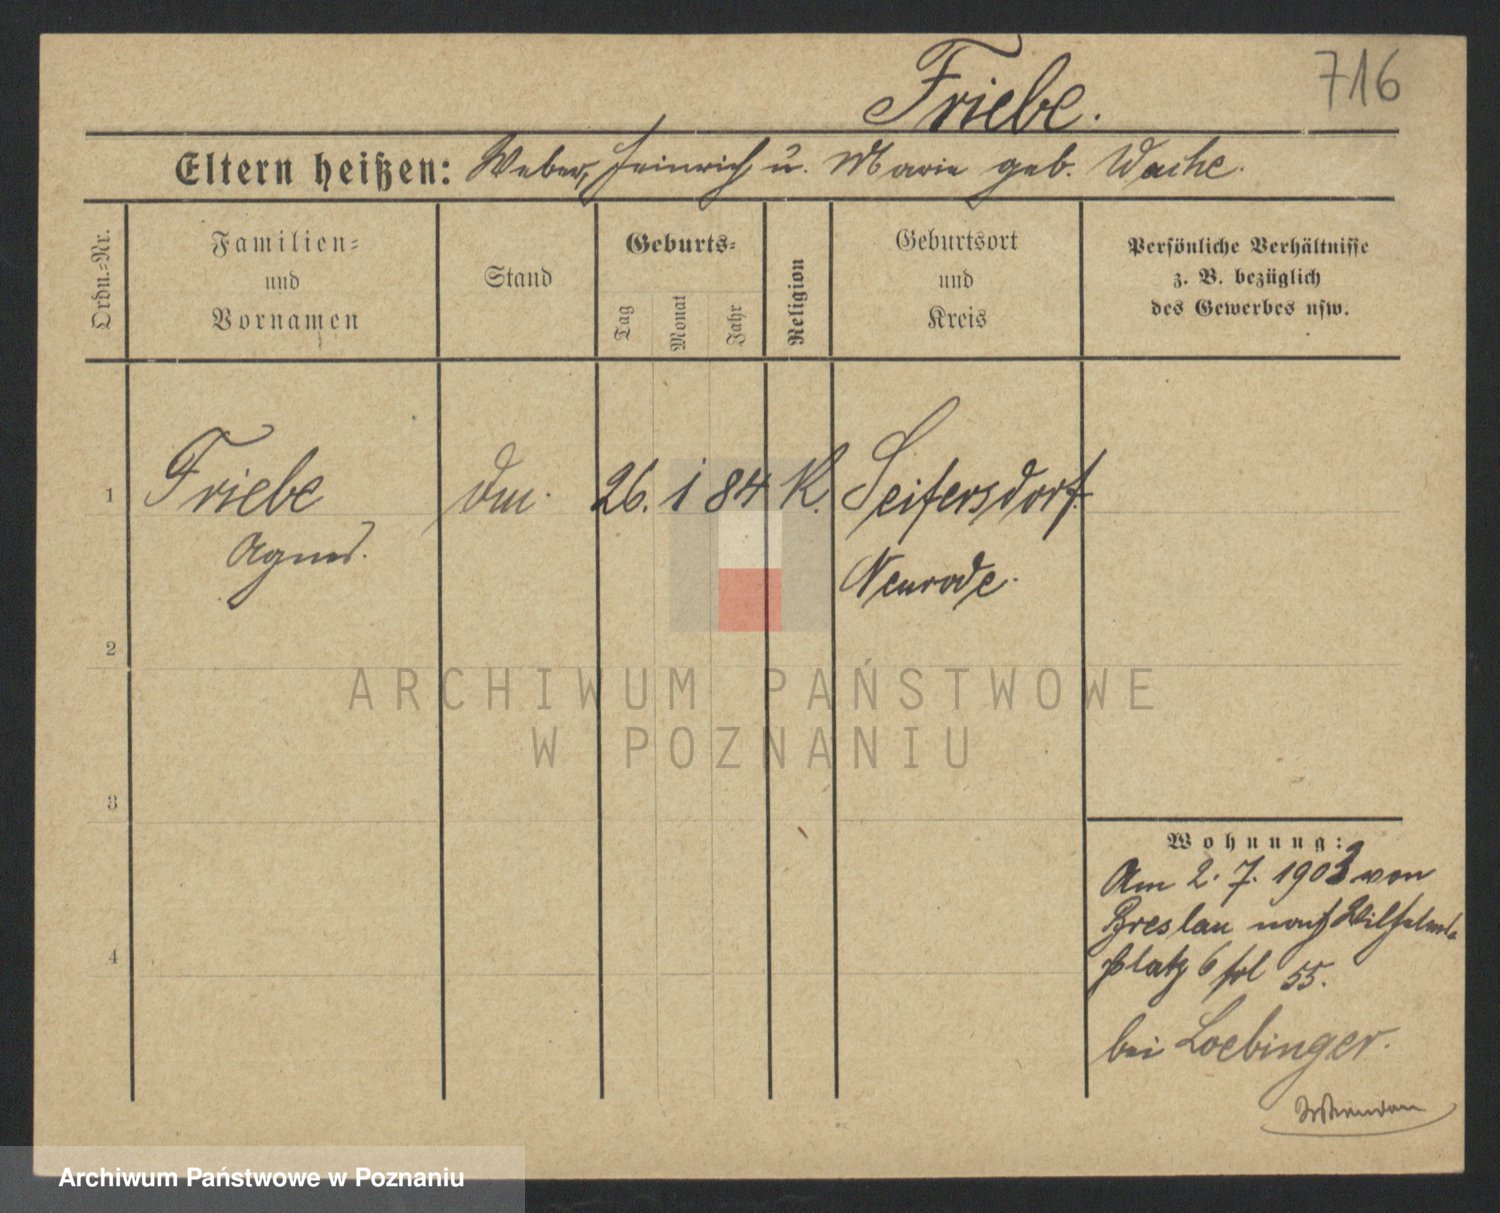 716
Friebe.
Eltern heißen: Weber, Heinrich u. Marie geb. Wache.
Ordn.=Nr.
Familien=
und
Vornamen
Stand
Geburts=
Tag
Monat
Jahr
Religion
Geburtsort
und
Kreis
Persönliche Verhältnisse
z. B. bezüglich
des Gewerbes usw.
1
Friebe
Agnes.
26. 1 84 K.
Seifersdorf
Neurode.
2
3
4
Wohnung:
Am 2. 7. 1903 von
Breslau nach Wilhelms=
platz 6 fol 55.
bei Loebinger.
ARCHIWUM PAŃSTWOWE
W POZNANIU
Archiwum Państwowe w Poznaniu